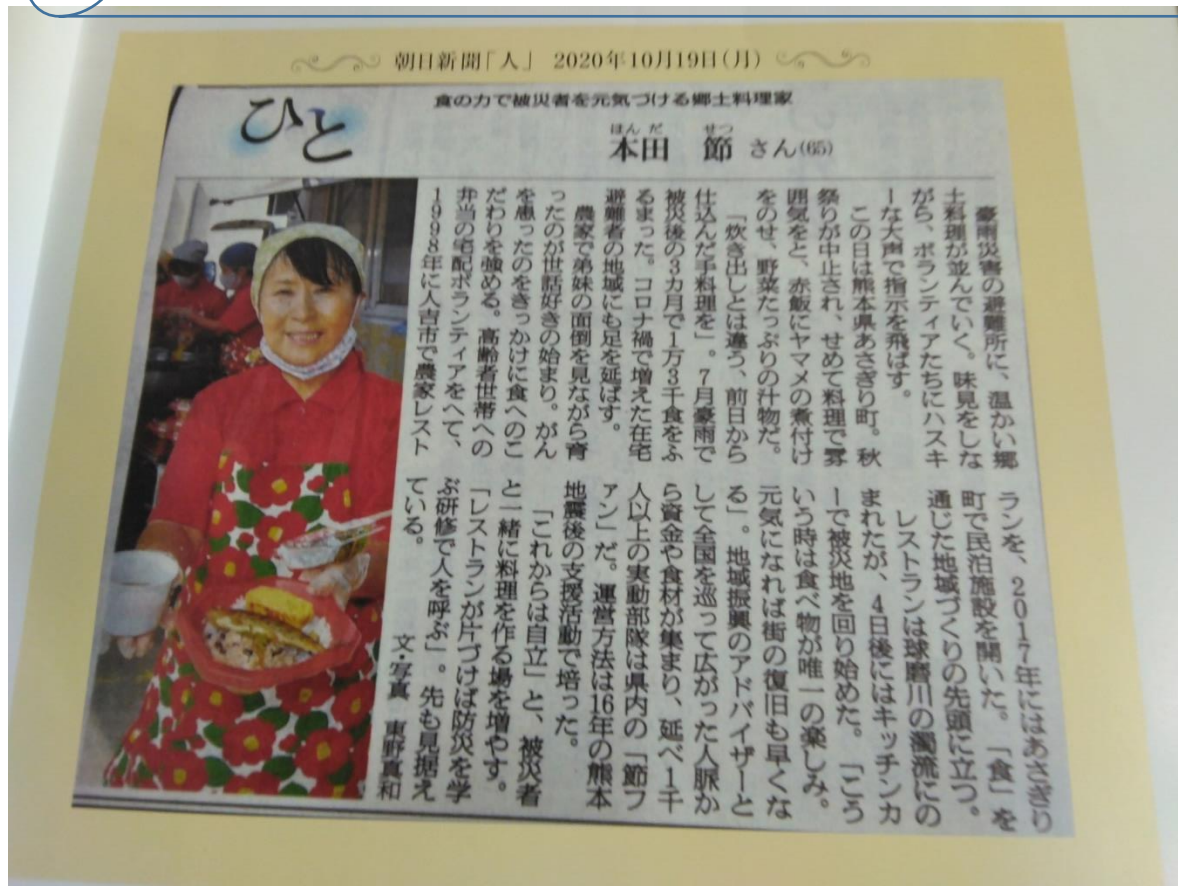 朝日新聞「人」 2020年10月19日(月)
ひと
食の力で被災者を元気づける郷土料理家
ほんだ せつ
本田 節 さん(65)
豪雨災害の避難所に、温かい郷
土料理が並んでいく。味見をしな
がら、ボランティアたちにハスキ
ーな大声で指示を飛ばす。
この日は熊本県あさぎり町。秋
祭りが中止され、せめて料理で雰
囲気をと、赤飯にヤマメの煮付け
をのせ、野菜たっぷりの汁物だ。
「炊き出しとは違う、前日から
仕込んだ手料理を」。7月豪雨で
被災後の3カ月で1万3千食をふ
るまった。コロナ禍で増えた在宅
避難者の地域にも足を延ばす。
農家で弟妹の面倒を見ながら育
ったのが世話好きの始まり。がん
を患ったのをきっかけに食へのこ
だわりを強める。高齢者世帯への
弁当の宅配ボランティアをへて、
1998年に人吉市で農家レスト
ランを、2017年にはあさぎり
町で民泊施設を開いた。「食」を
通じた地域づくりの先頭に立つ。
レストランは球磨川の濁流にの
まれたが、4日後にはキッチンカ
ーで被災地を回り始めた。「こう
いう時は食べ物が唯一の楽しみ。
元気になれば街の復旧も早くな
る」。地域振興のアドバイザーと
して全国を巡って広がった人脈か
ら資金や食材が集まり、延べ1千
人以上の実動部隊は県内の「節フ
ァン」だ。運営方法は16年の熊本
地震後の支援活動で培った。
「これからは自立」と、被災者
と一緒に料理を作る場を増やす。
「レストランが片づけば防災を学
ぶ研修で人を呼ぶ」。先も見据え
ている。
文・写真 東野真和